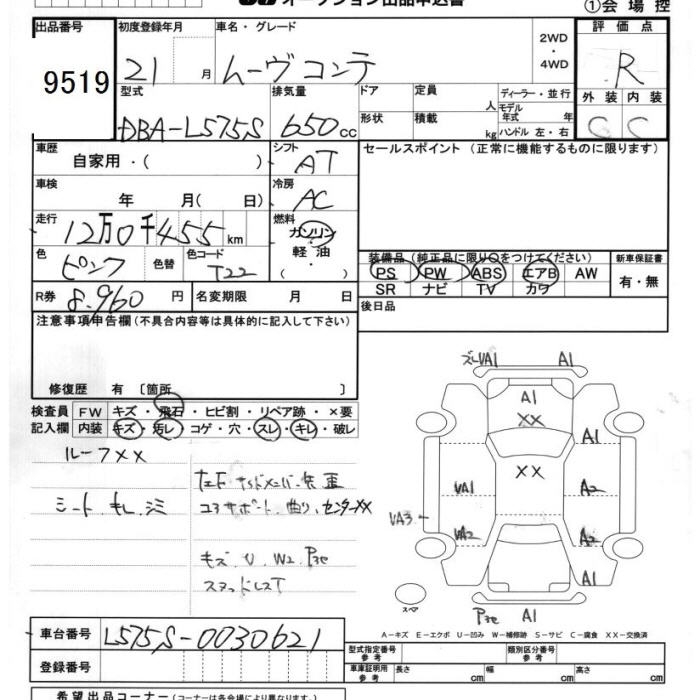 オークション出品申込書
①会場控
出品番号 初度登録年月 車名・グレード 評価点
9519 21 月 ムーヴコンテ 2WD・4WD R
型式 排気量 ドア 定員 人 ディーラー・並行 外装 内装
DBA-L575S 650cc 形状 積載 kg モデル年式 年 ハンドル 左・右 C C
車歴 自家用・( ) シフト AT セールスポイント (正常に機能するものに限ります)
車検 年 月(日) 冷房 AC
走行 12万0千455km 燃料 ガソリン・軽油・
色 ピンク 色替 色コード T22 装備品 (純正品に限り○をつけてください) 新車保証書
PS PW ABS エアB AW 有・無
R券 8,960円 名変期限 月 日 SR ナビ TV カワ
注意事項申告欄(不具合内容等は具体的に記入して下さい) 後日品
修復歴 有 〔箇所 〕
検査員 FW キズ・飛石・ヒビ割・リペア跡・×要
記入欄 内装 キズ・汚レ・コゲ・穴・スレ・キレ・破レ
ルーフXX
シート キレ シミ
コアサポート 曲り、センターXX
キズ U W2 
スタッドレスT
VA1 A1
A1
XX
A1
XX
VA1 A2
VA3
VA2 A2
A1
スペア A1
A-キズ E-エクボ U-凹み W-補修跡 S-サビ C-腐食 XX-交換済
車台番号 L575S-0030621
型式指定番号 参考 類別区分番号 参考
登録番号 車庫証明用 参考 長さ cm 幅 cm 高さ cm
希望出品コーナー(コーナーは各会場により異なります)